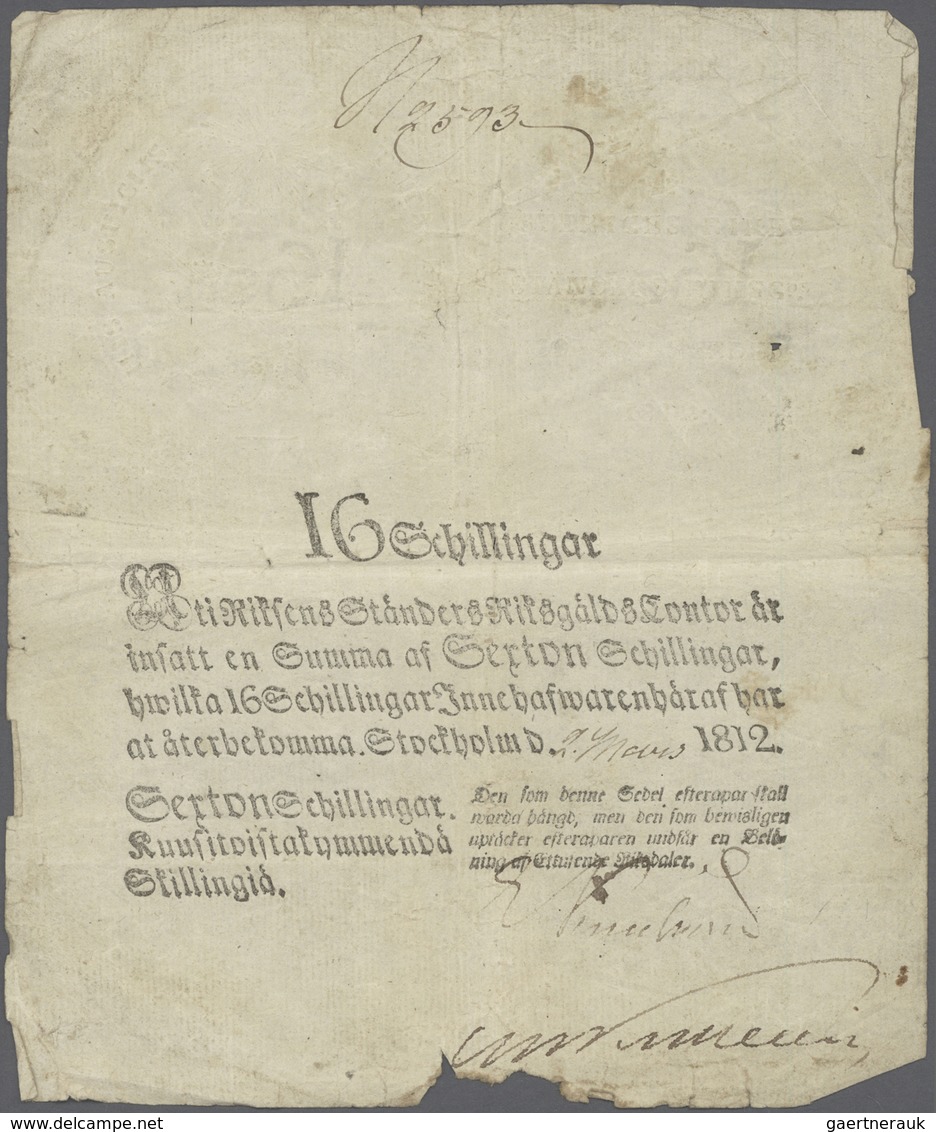 N 2593.
16 Schillingar
At i Riksens Ständers Riksgälds Contor är
insatt en Summa af Sexton Schillingar,
hwilka 16 Schillingar Innehafwaren häraf har
at återbekomma. Stockholm d. 2. Mars 1812.
Sexton Schillingar.
Kuusitoistakymmendä
Skillingiä.
Den som denne Sedel efterapar skall
warda hängd, men den som bewisligen
uptäcker efteraparen undfår en Belö-
ning af Ettusende Riksdaler.
www.delcampe.net
gaertnerauk